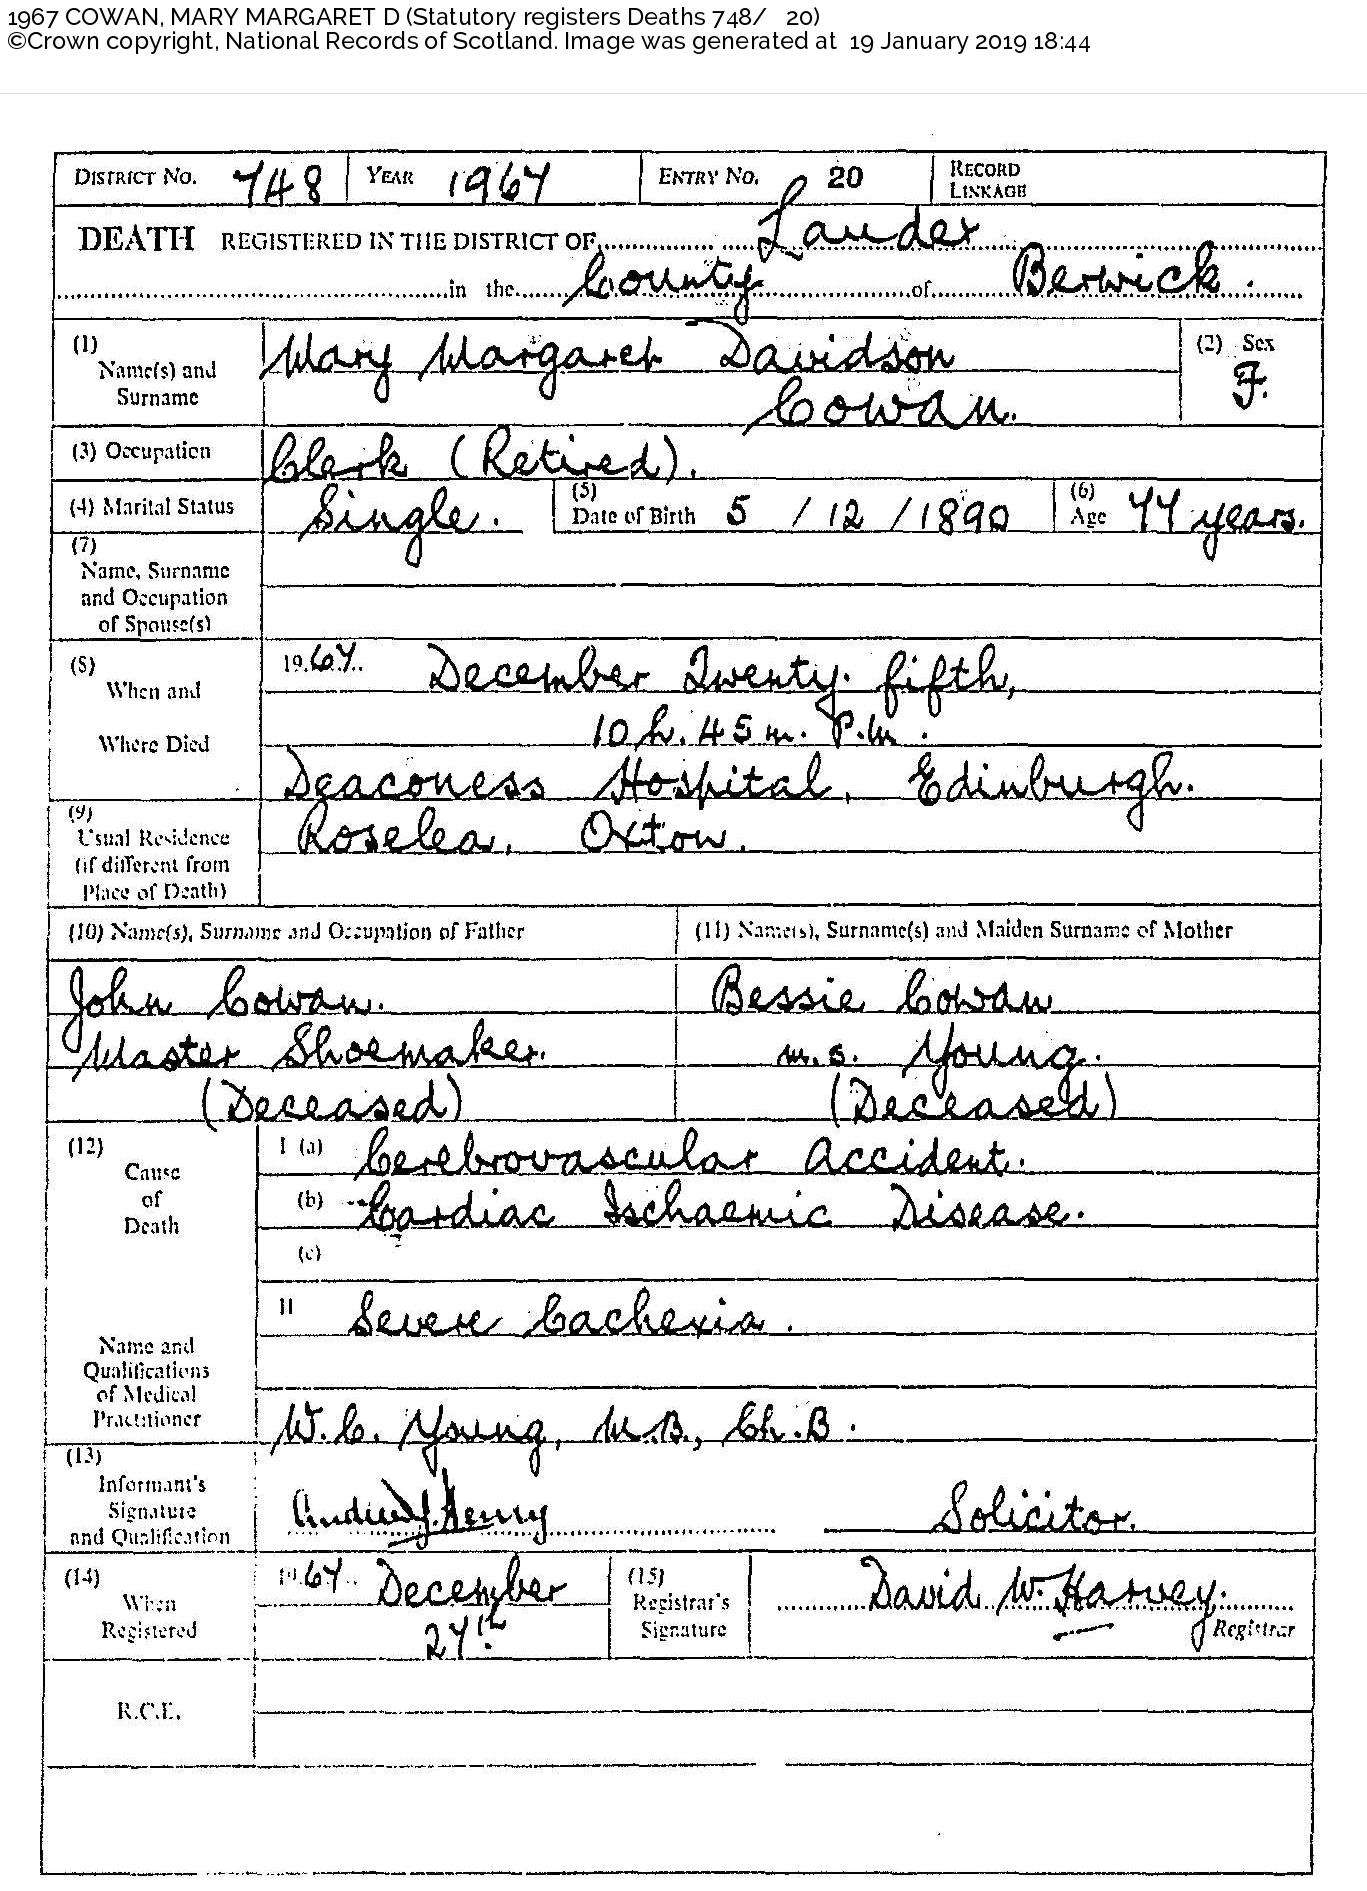 1967 COWAN, MARY MARGARET D (Statutory registers Deaths 748/ 20)
©Crown copyright, National Records of Scotland. Image was generated at 19 January 2019 18:44
DISTRICT NO. 748 YEAR 1967 ENTRY NO. 20 RECORD LINKAGE
DEATH REGISTERED IN THE DISTRICT OF Lauder
in the County of Berwick.
(1) Name(s) and Surname Mary Margaret Davidson (2) Sex F.
Cowan.
(3) Occupation Clerk (Retired).
(4) Marital Status Single. (5) Date of Birth 5 / 12 / 1890 (6) Age 77 years.
(7)
Name, Surname
and Occupation
of Spouse(s)
(8) When and 1967 December Twenty fifth,
Where Died 10 h. 45 m. P.m.
Deaconess Hospital, Edinburgh.
(9)
Usual Residence Roselea, Oxton.
(if different from
Place of Death)
(10) Name(s), Surname and Occupation of Father (11) Name(s), Surname(s) and Maiden Surname of Mother
John Cowan. Bessie Cowan
Master Shoemaker. m.s. Young.
(Deceased) (Deceased)
(12) Cause of Death I (a) Cerebrovascular Accident.
(b) Cardiac Ischaemic Disease.
(c)
II Severe Cachexia.
Name and
Qualifications
of Medical
Practitioner W.C. Young, M.B., Ch.B.
(13)
Informant's
Signature Andrew J. Henry Solicitor.
and Qualification
(14) When Registered 1967 December 27th. (15) Registrar's Signature David W. Harvey. Registrar
R.C.E.